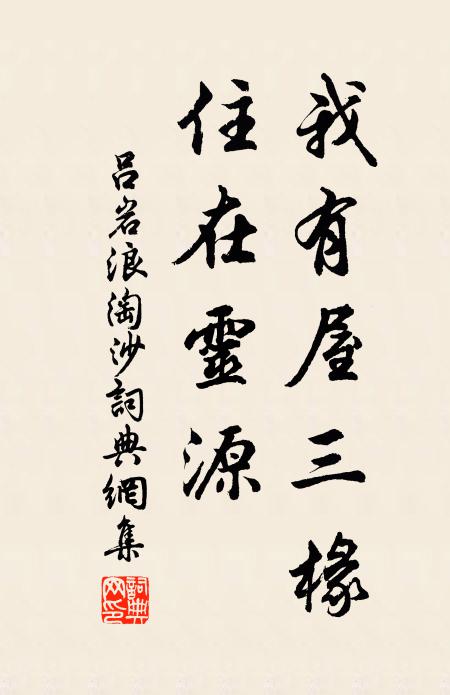 我有屋三椽
住在靈源
吕岩浪淘沙詞典網集
詞典網印